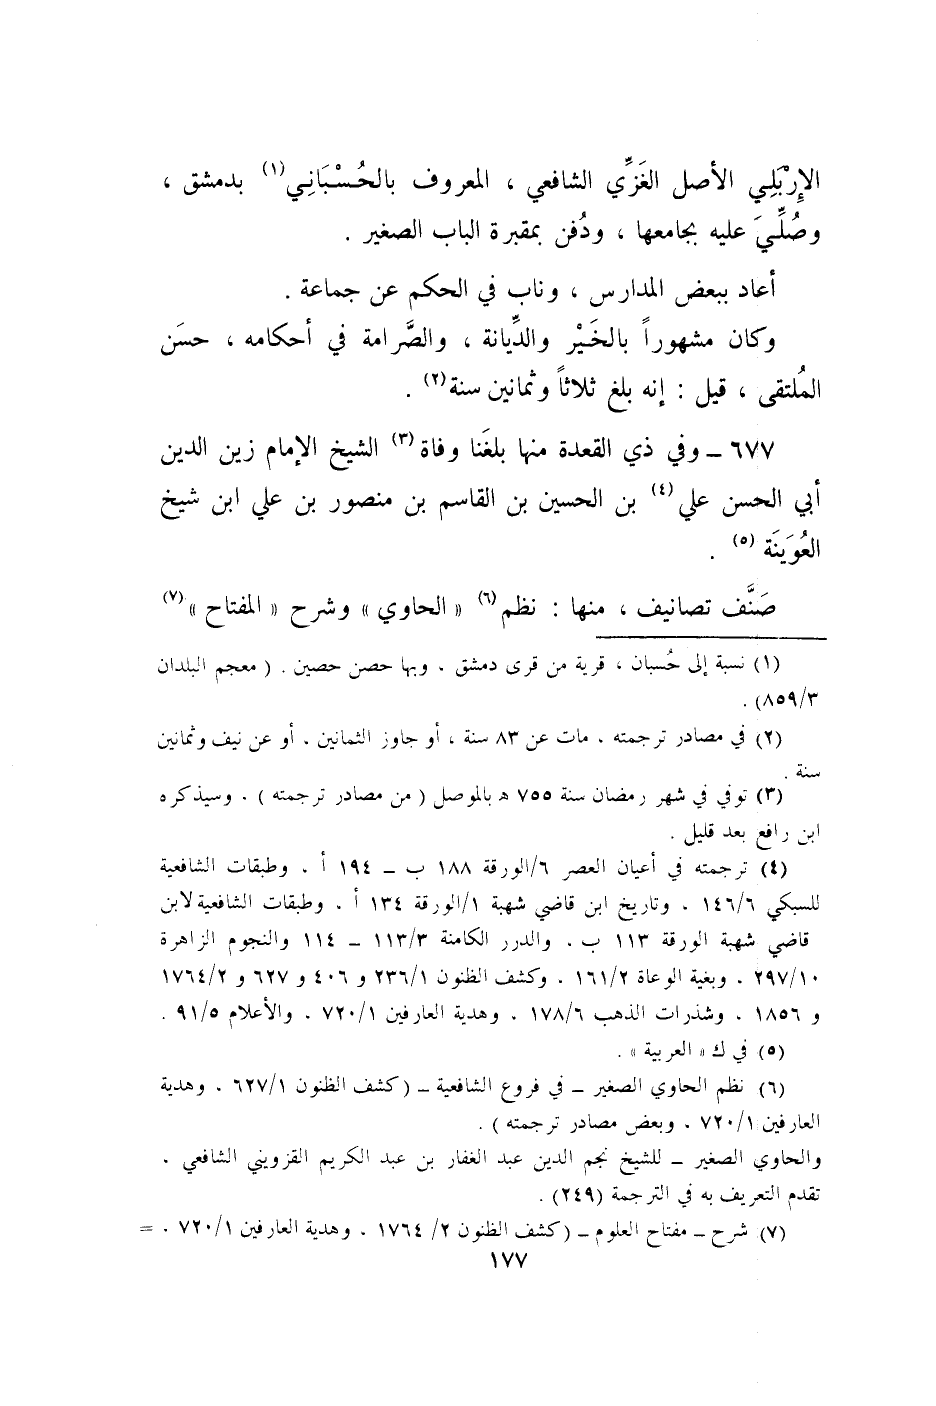 الإِرْبَلِي الأصل الغَزِّي الشافعي ، المعروف بالحُسْبَانِي(١) بدمشق ،
وصُلِّيَ عليه بجامعها ، ودُفن بمقبرة الباب الصغير .
أعاد ببعض المدارس ، وناب في الحكم عن جماعة .
وكان مشهوراً بالخَيْر والدِّيانة ، والصَّرامة في أحكامه ، حسَن
المُلتقى ، قيل : إنه بلغ ثلاثاً وثمانين سنة(٢) .
٦٧٧ ـ وفي ذي القعدة منها بلغَنا وفاة(٣) الشيخ الإمام زين الدين
أبي الحسن علي(٤) بن الحسين بن القاسم بن منصور بن علي ابن شيخ
العُوَينَة(٥) .
صَنَّف تصانيف ، منها : نظم(٦) « الحاوي » وشرح « المفتاح »(٧)
(١) نسبة إلى حُسبان ، قرية من قرى دمشق . وبها حصن حصين . ( معجم البلدان
٨٥٩/٣) .
(٢) في مصادر ترجمته . مات عن ٨٣ سنة ، أو جاوز الثمانين . أو عن نيف وثمانين
سنة .
(٣) توفي في شهر رمضان سنة ٧٥٥ هـ بالموصل ( من مصادر ترجمته ) . وسيذكره
ابن رافع بعد قليل .
(٤) ترجمته في أعيان العصر ٦/الورقة ١٨٨ ب ــ ١٩٤ أ . وطبقات الشافعية
للسبكي ١٤٦/٦ . وتاريخ ابن قاضي شهبة ١/الورقة ١٣٤ أ . وطبقات الشافعية لابن
قاضي شهبة الورقة ١١٣ ب . والدرر الكامنة ١١٣/٣ ــ ١١٤ والنجوم الزاهرة
٢٩٧/١٠ . وبغية الوعاة ١٦١/٢ . وكشف الظنون ٢٣٦/١ و ٤٠٦ و ٦٢٧ و ١٧٦٤/٢
و ١٨٥٦ . وشذرات الذهب ١٧٨/٦ . وهدية العارفين ٧٢٠/١ . والأعلام ٩١/٥ .
(٥) في ك « العربية » .
(٦) نظم الحاوي الصغير ــ في فروع الشافعية ــ (كشف الظنون ٦٢٧/١ . وهدية
العارفين ٧٢٠/١ . وبعض مصادر ترجمته ) .
والحاوي الصغير ــ للشيخ نجم الدين عبد الغفار بن عبد الكريم القزويني الشافعي .
تقدم التعريف به في الترجمة (٢٤٩) .
(٧) شرح ــ مفتاح العلوم ــ (كشف الظنون ٢/ ١٧٦٤ . وهدية العارفين ٧٢٠/١ . =
١٧٧